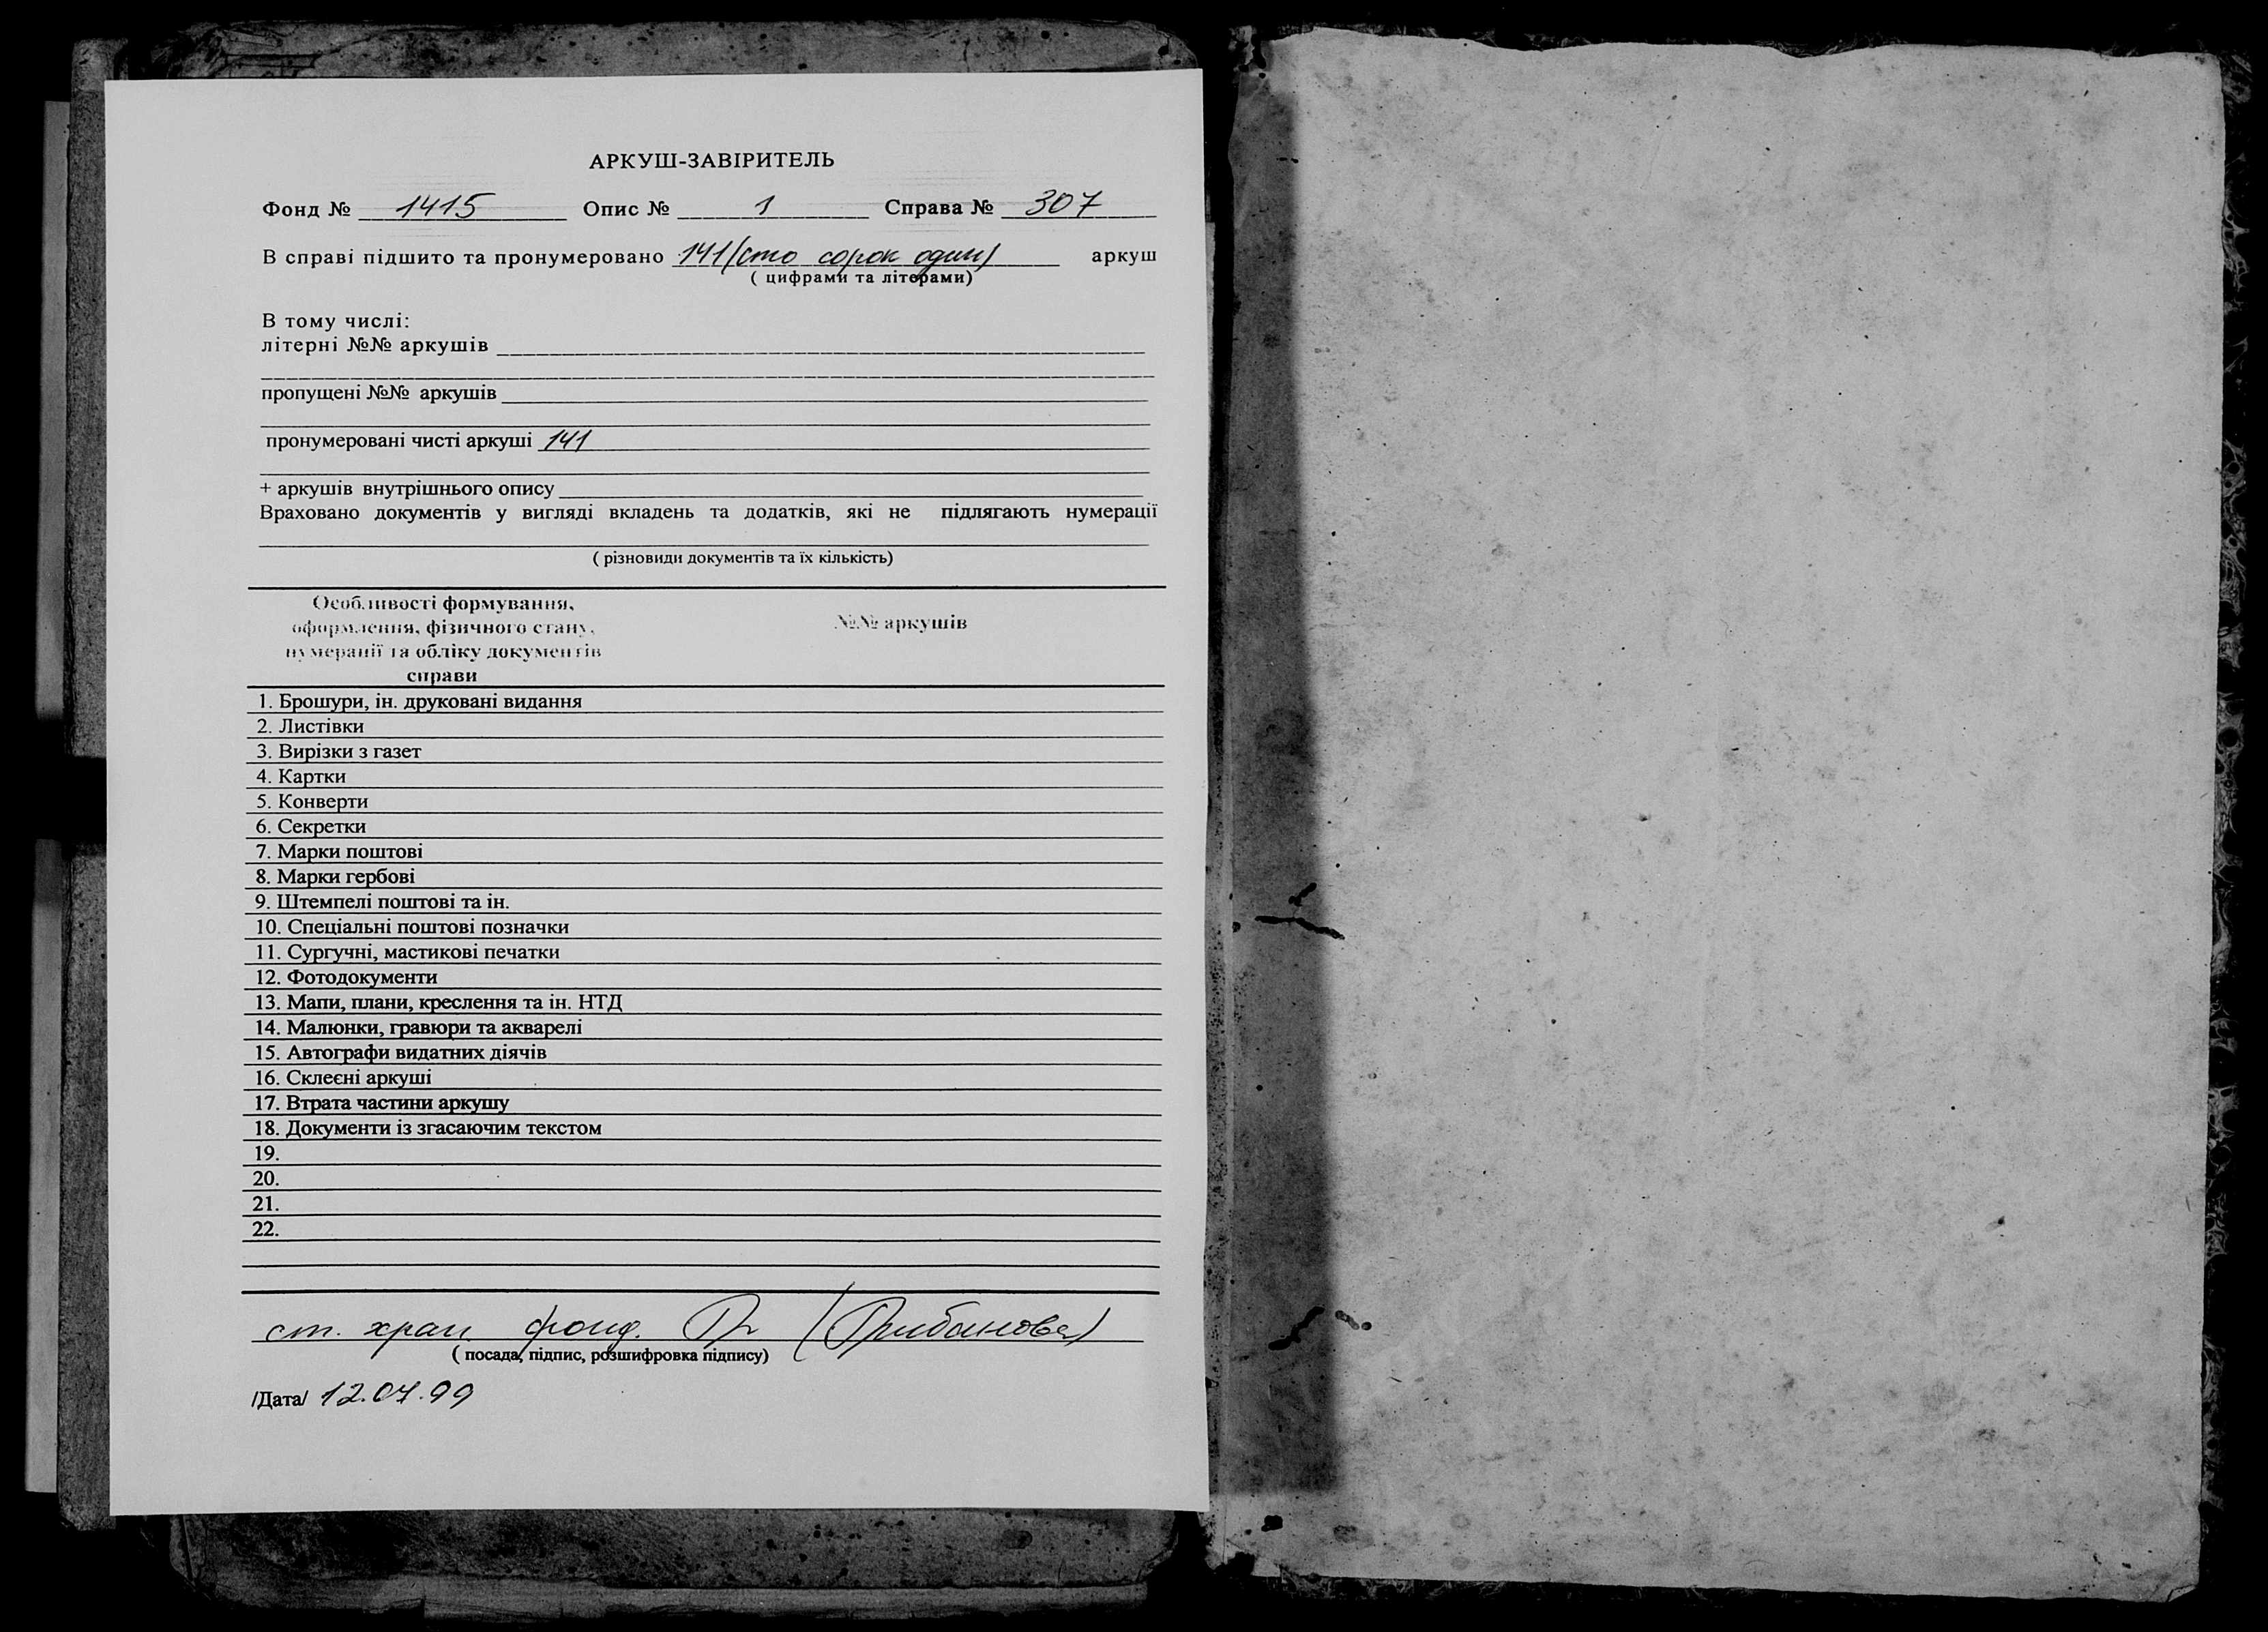 АРКУШ-ЗАВІРИТЕЛЬ
Фонд № 1415 Опис № 1 Справа № 307
В справі підшито та пронумеровано 141 (сто сорок один) аркуш
( цифрами та літерами)
В тому числі:
літерні №№ аркушів
пропущені №№ аркушів
пронумеровані чисті аркуші 141
+ аркушів внутрішнього опису
Враховано документів у вигляді вкладень та додатків, які не підлягають нумерації
( різновиди документів та їх кількість)
Особливості формування, №№ аркушів
оформлення, фізичного стану,
нумерації та обліку документів
справи
1. Брошури, ін. друковані видання
2. Листівки
3. Вирізки з газет
4. Картки
5. Конверти
6. Секретки
7. Марки поштові
8. Марки гербові
9. Штемпелі поштові та ін.
10. Спеціальні поштові позначки
11. Сургучні, мастикові печатки
12. Фотодокументи
13. Мапи, плани, креслення та ін. НТД
14. Малюнки, гравюри та акварелі
15. Автографи видатних діячів
16. Склеєні аркуші
17. Втрата частини аркушу
18. Документи із згасаючим текстом
19.
20.
21.
22.
ст. хран. фонд.
( посада, підпис, розшифровка підпису)
/Дата/ 12.07.99